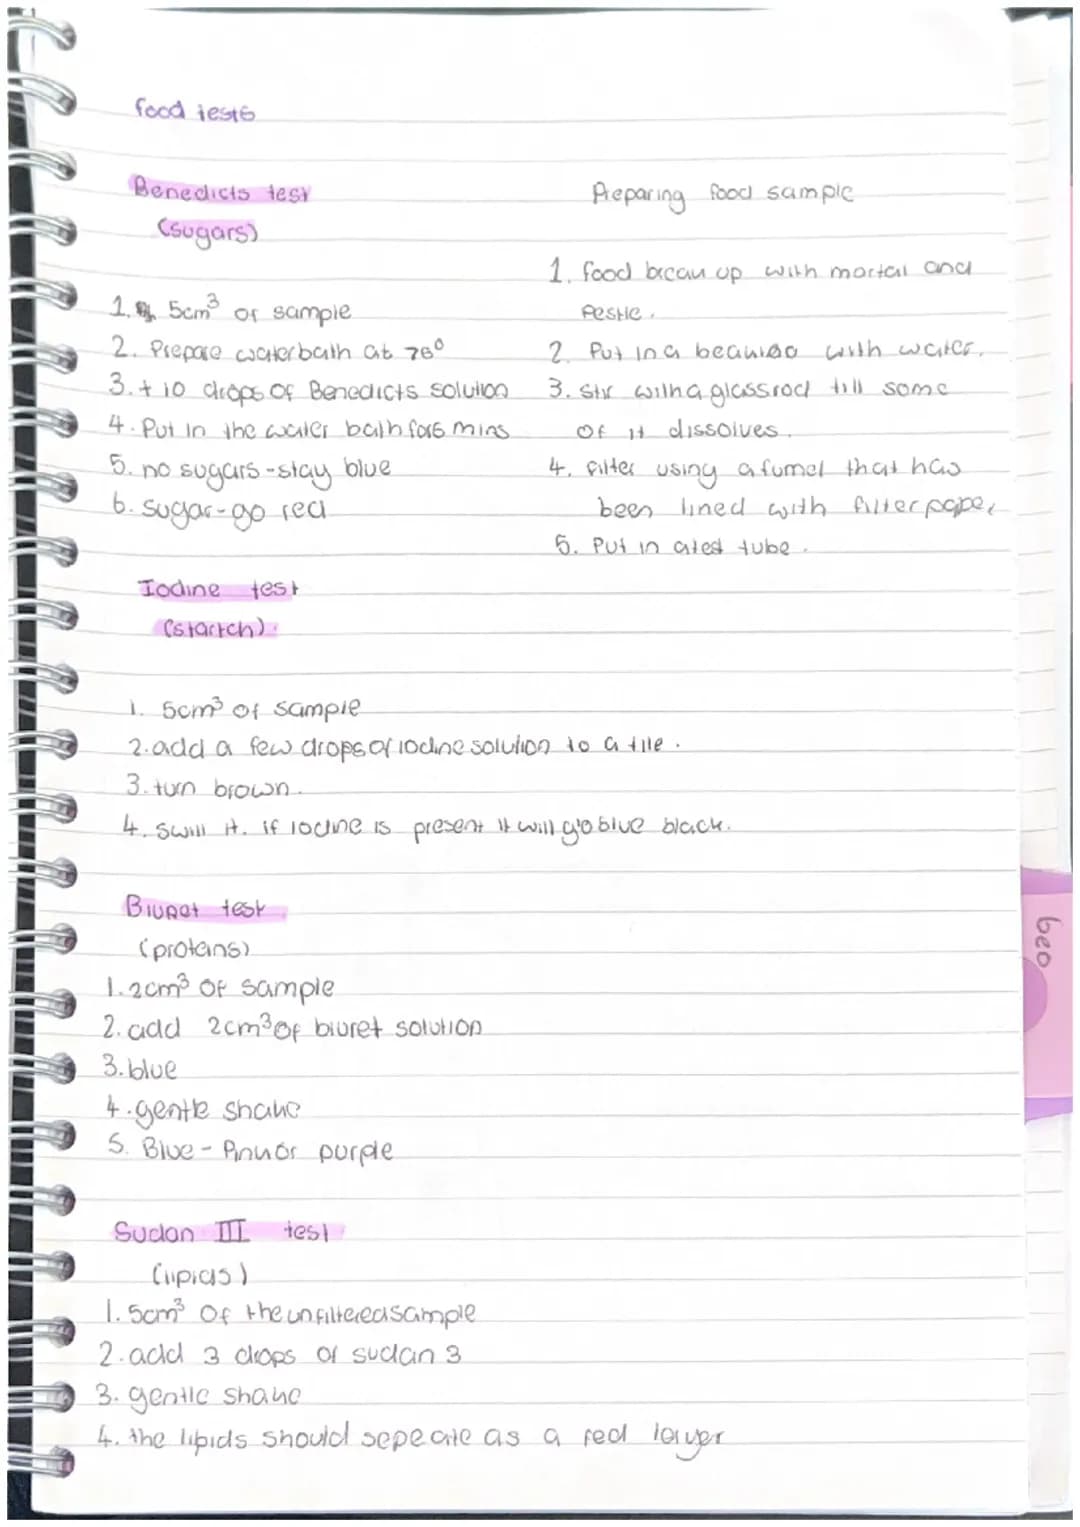 food tests
Benedicts test
(sugars)
1. 5cm³ of sample
2. Prepare waterbath at 780
3. + 10 drops of Benedicts solution
4. Put in the water bath for 5 mins
5. no sugars - stay blue
6. sugar - go red
Preparing food sample
1. food break up with mortar and
pestle.
2. Put in a beaker with water.
3. stir with a glass rod till some
of it dissolves.
4. filter using a funnel that has
been lined with filter paper
5. Put in a test tube.
Iodine test
(startch).
1. 5cm³ of sample
2. add a few drops of iodine solution to a tile.
3. turn brown.
4. swill it. if iodine is present it will go blue black.
Biuret test
(proteins)
1. 2cm³ of sample
2. add 2cm³ of biuret solution
3. blue
4. gentle shake
5. Blue - Pink or purple
Sudan III test
(lipids)
1. 5cm³ of the unfiltered sample
2. add 3 drops of sudan 3
3. gentle shake
4. the lipids should seperate as a red layer
beo